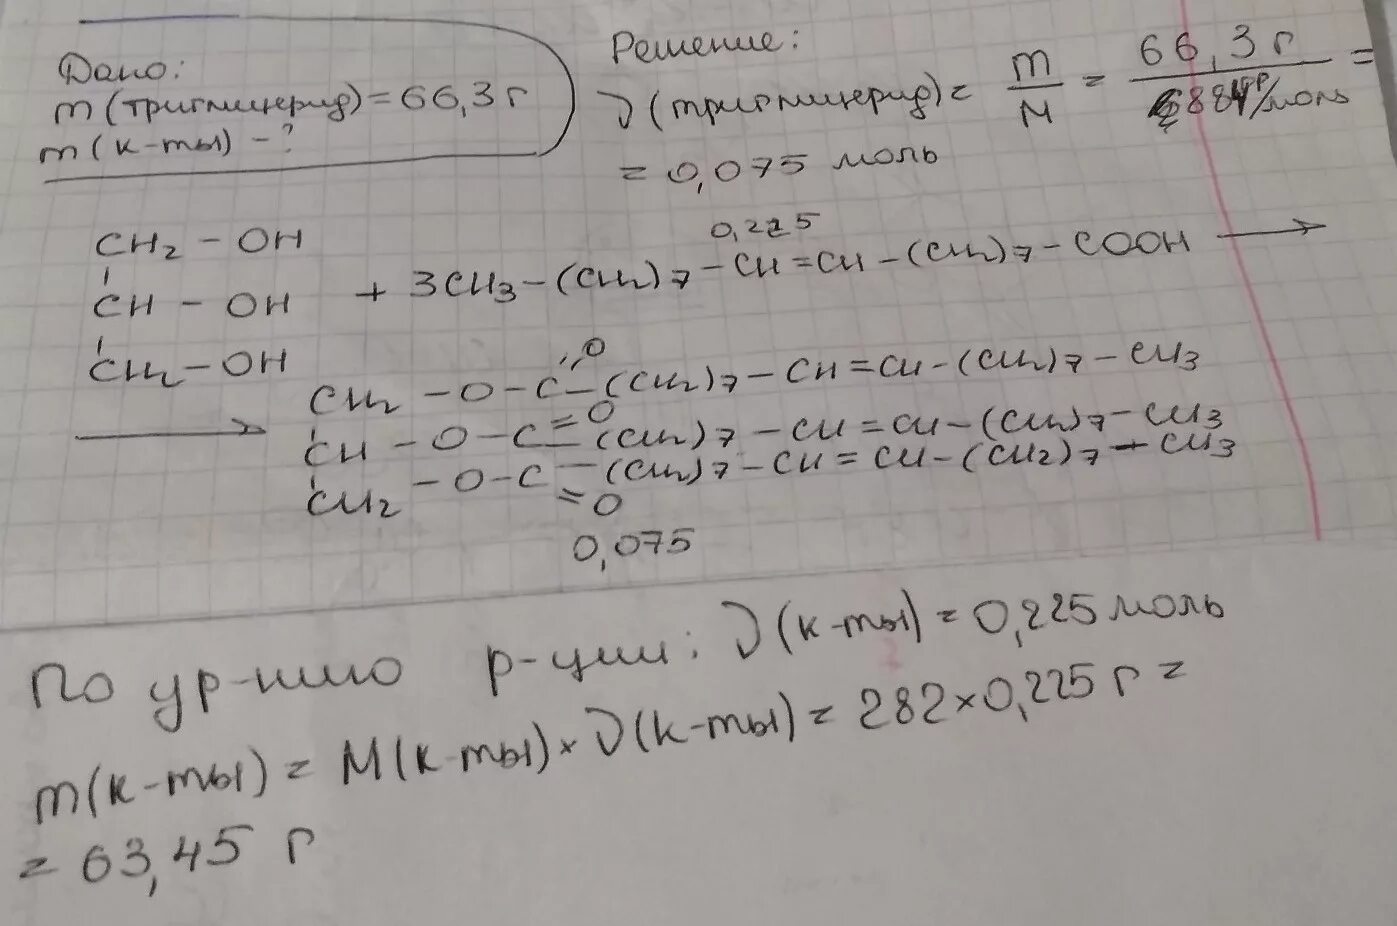 Дано:
m(триглицерид)=66,3 г
m(к-ты) - ?
Решение:
ν(триглицерид)= m/M = 66,3 г / 884 г/моль =
= 0,075 моль
0,225
CH2 - OH
CH - OH
CH2 - OH
+ 3CH3-(CH2)7-CH=CH-(CH2)7-COOH →
→ CH2 - O - C(=O) - (CH2)7 - CH = CH - (CH2)7 - CH3
CH - O - C(=O) - (CH2)7 - CH = CH - (CH2)7 - CH3
CH2 - O - C(=O) - (CH2)7 - CH = CH - (CH2)7 - CH3
0,075
По ур-нию р-ции: ν(к-ты) = 0,225 моль
m(к-ты) = M(к-ты) × ν(к-ты) = 282×0,225 г =
= 63,45 г